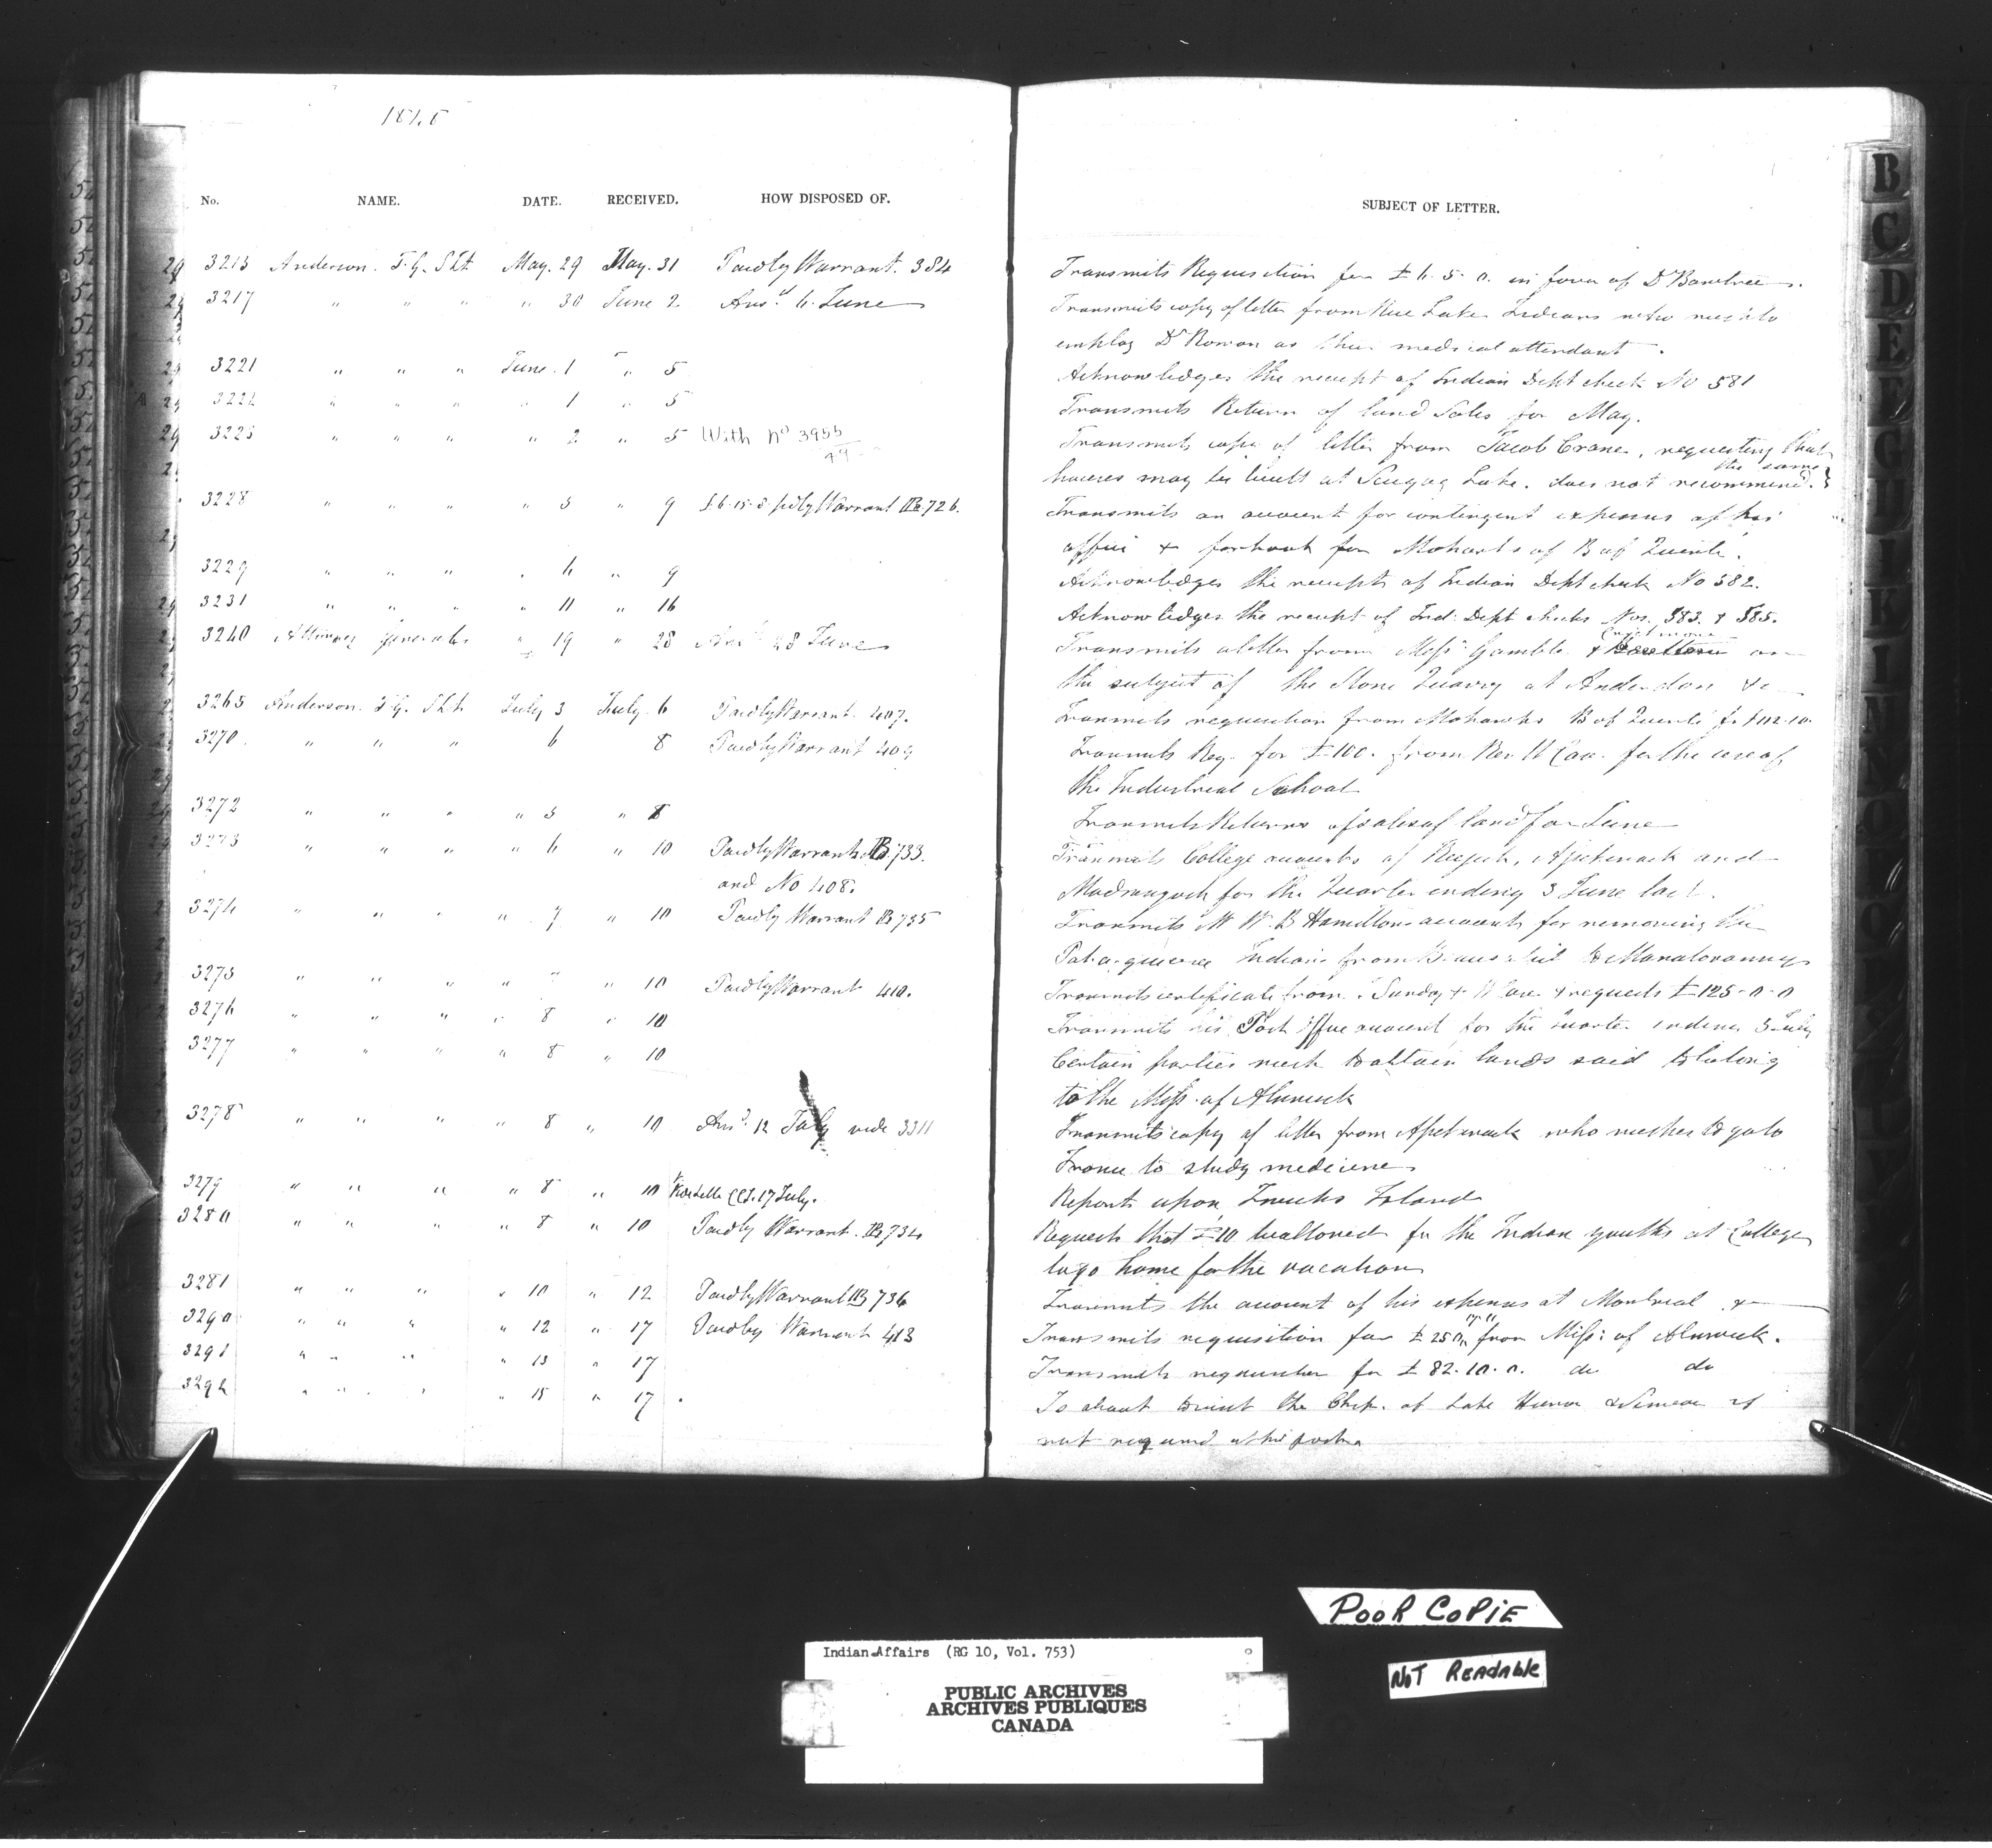 184
No. NAME. DATE. RECEIVED. HOW DISPOSED OF. SUBJECT OF LETTER.
3213 Anderson. T.G. Spt May. 29 May. 31 Paid by Warrant. 384 Transmits Requisition for £ 5. 0. in favor of Dr
3217 " " " " 30 June 2 Ansd 6. June Transmits copy of letter from Rice Lake Indians who wish to
employ Dr Rowan as their medical attendant.
3221 " " " June. 1 " 5 Acknowledges the receipt of Indian Dept check No 581
3222 " " " 1 " 5 Transmits Return of land Sales for May.
3223 " " " " 2 " 5 With No 3955 Transmits copy of letter from Jacob Crane, requesting that
houses may be built at Scugog Lake. does not recommend the same
3228 " " " " 5 " 9 £6.15.8 pd by Warrant B.726. Transmits an account for contingent expenses of his
office & for Mohawks of B of Quinte.
3229 " " " " 6 " 9 Acknowledges the receipts of Indian Dept check No 582.
3231 " " " " 11 " 16 Acknowledges the receipt of Ind: Dept checks Nos. 583. & 585.
3240 Attorney General " 19 " 28 Ansd 28 June Transmits a letter from Messrs Gamble & on
the subject of the Stone Quarry at Anderdon &c
3265 Anderson. T.G. Spt July 3 July. 6 Paid by Warrant. 407. Transmits requisition from Mohawks B of Quinte for £112.10.
3270. " " " 6 8 Paid by Warrant 409 Transmits Req. for £100. from Rev W Case. for the use of
the Industrial School
3272 " " " " 5 " 8 Transmits Returns of sales of land for June
3273 " " " " 6 " 10 Paid by Warrants B.733. Transmits College accounts of and
and No 408. for the Quarter ending 3 June last.
3274 " " " " 7 " 10 Paid by Warrant B 735 Transmits Mr W. B Hamiltons accounts for removing the
Indians from to Manatowanning
3275 " " " " " " 10 Paid by Warrant 410. Transmits certificate from Sunday & W Case & requests £125-0-0
3276 " " " " 8 " 10 Transmits his Post Office account for the Quarter ending 5 July
3277 " " " " 8 " 10 Certain parties wish to obtain lands said to belong
to the Miss. of Alnwick
3278 " " " " 8 " 10 Ansd. 12 July vide 3311 Transmits copy of letter from who wishes to go to
France to study medicine
3279 " " " " 8 " 10 17 July. Report upon Island
3280 " " " " 8 " 10 Paid by Warrant. B 734 Requests that £10 be allowed for the Indian youths at College
to go home for the vacation
3281 " " " " 10 " 12 Paid by Warrant B 736 Transmits the account of his expenses at Montreal &
3290 " " " " 12 " 17 Paid by Warrant 413 Transmits requisition for £ 250 from Miss: of Alnwick.
3291 " " " " 13 " 17 Transmits requisition for £ 82. 10. 0. do do
3292 " " " " 15 " 17 Is about to visit the Chip. of Lake Huron & Simcoe if
not required at his post
B
C
D
E
F
G
H
I
K
L
M
N
O
POOR COPIE
NOT READABLE
Indian Affairs (RG 10, Vol. 753)
PUBLIC ARCHIVES
ARCHIVES PUBLIQUES
CANADA